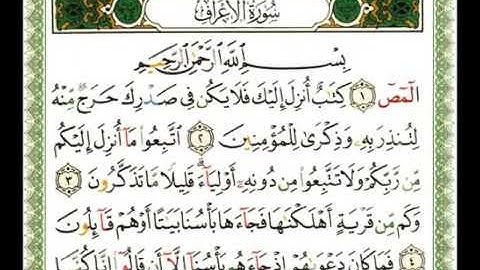 سُورَةُ الْأَعْرَافِ
بِسْمِ اللَّهِ الرَّحْمَٰنِ الرَّحِيمِ
الٓمٓصٓ ١ كِتَٰبٌ أُنزِلَ إِلَيْكَ فَلَا يَكُن فِى صَدْرِكَ حَرَجٌ مِّنْهُ
لِتُنذِرَ بِهِۦ وَذِكْرَىٰ لِلْمُؤْمِنِينَ ٢ ٱتَّبِعُوا۟ مَآ أُنزِلَ إِلَيْكُم
مِّن رَّبِّكُمْ وَلَا تَتَّبِعُوا۟ مِن دُونِهِۦٓ أَوْلِيَآءَ ۗ قَلِيلًا مَّا تَذَكَّرُونَ ٣
وَكَم مِّن قَرْيَةٍ أَهْلَكْنَٰهَا فَجَآءَهَا بَأْسُنَا بَيَٰتًا أَوْ هُمْ قَآئِلُونَ
٤ فَمَا كَانَ دَعْوَىٰهُمْ إِذْ جَآءَهُم بَأْسُنَآ إِلَّآ أَن قَالُوٓا۟ إِنَّا كُنَّا